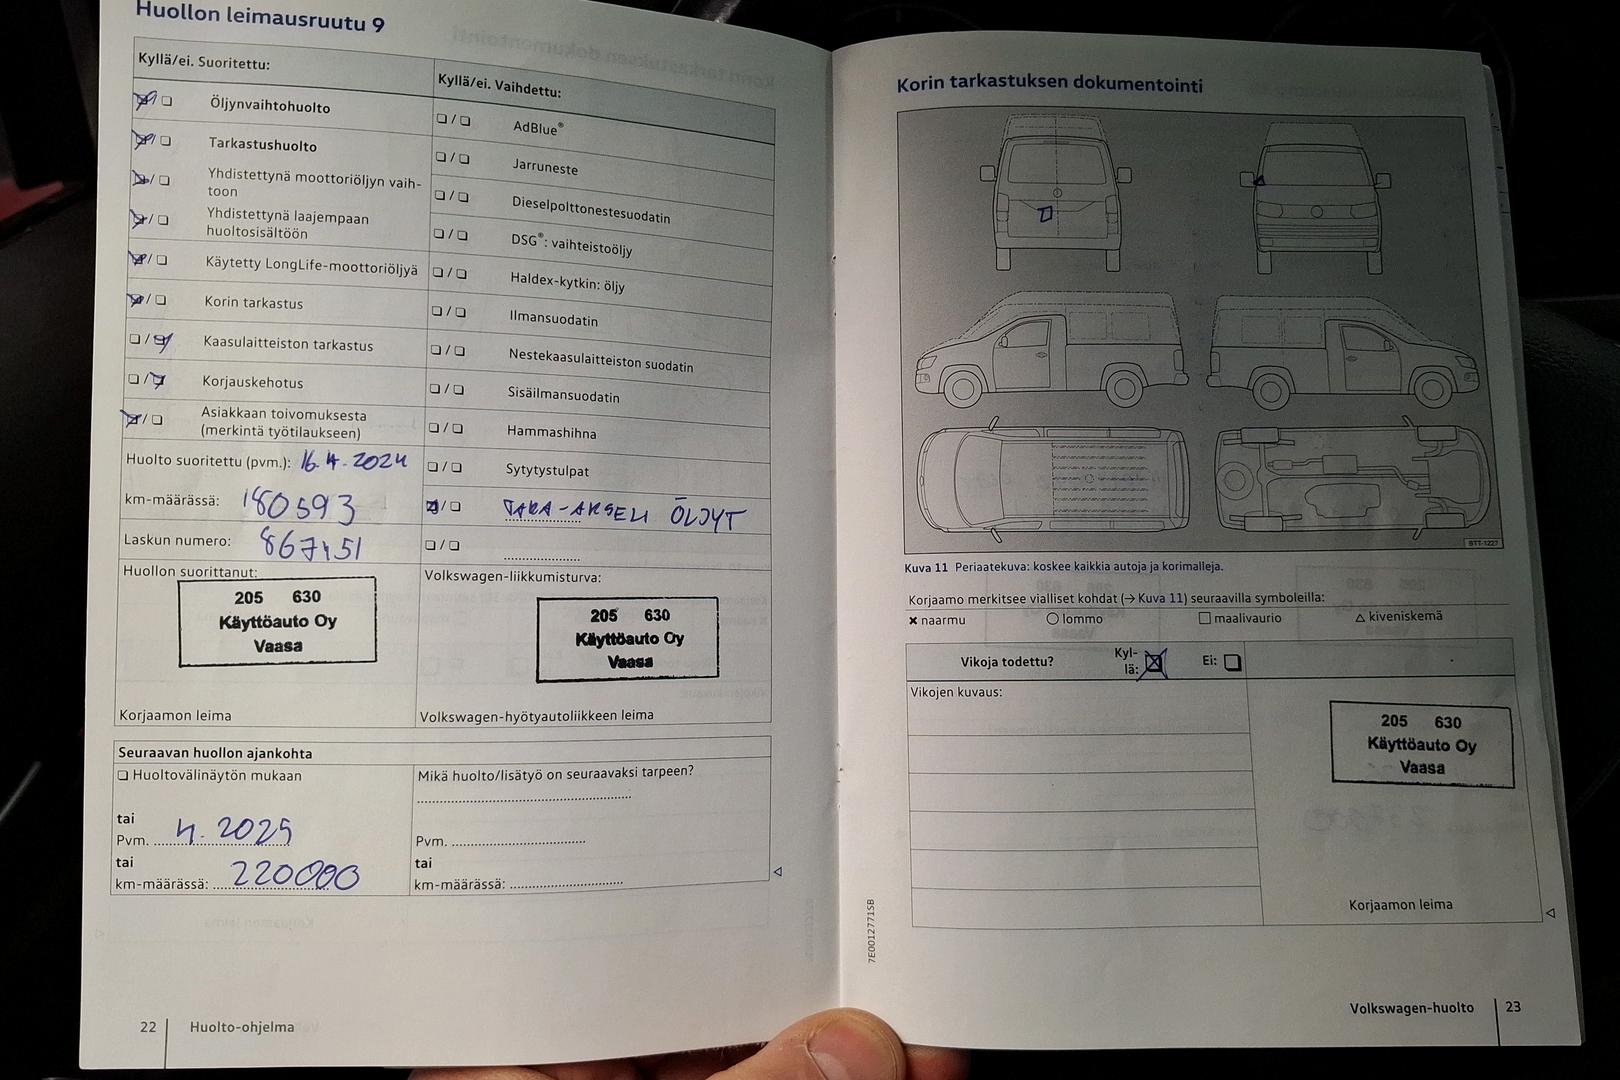 Huollon leimausruutu 9
Kyllä/ei. Suoritettu:
Öljynvaihtohuolto
Tarkastushuolto
Yhdistettynä moottoriöljyn vaih-
toon
Yhdistettynä laajempaan
huoltosisältöön
Käytetty LongLife-moottoriöljyä
Korin tarkastus
Kaasulaitteiston tarkastus
Korjauskehotus
Asiakkaan toivomuksesta
(merkintä työtilaukseen)
Huolto suoritettu (pvm.): 16.4.2024
km-määrässä: 180593
Laskun numero: 867151
Kyllä/ei. Vaihdettu:
AdBlue®
Jarruneste
Dieselpolttonestesuodatin
DSG®: vaihteistoöljy
Haldex-kytkin: öljy
Ilmansuodatin
Nestekaasulaitteiston suodatin
Sisäilmansuodatin
Hammashihna
Sytytystulpat
TAKA-AKSELI ÖLJYT
Huollon suorittanut:
205 630
Käyttöauto Oy
Vaasa
Korjaamon leima
Volkswagen-liikkumisturva:
205 630
Käyttöauto Oy
Vaasa
Volkswagen-hyötyautoliikkeen leima
Seuraavan huollon ajankohta
Huoltovälinäytön mukaan
tai
Pvm. 4.2025
tai
km-määrässä: 220000
Mikä huolto/lisätyö on seuraavaksi tarpeen?
Pvm.
tai
km-määrässä:
22 Huolto-ohjelma
Korin tarkastuksen dokumentointi
BTT-1227
Kuva 11 Periaatekuva: koskee kaikkia autoja ja korimalleja.
Korjaamo merkitsee vialliset kohdat (→ Kuva 11) seuraavilla symboleilla:
× naarmu ○ lommo □ maalivaurio △ kiveniskemä
Vikoja todettu? Kyl-
lä: Ei:
Vikojen kuvaus:
205 630
Käyttöauto Oy
Vaasa
Korjaamon leima
7E0012771SB
Volkswagen-huolto 23